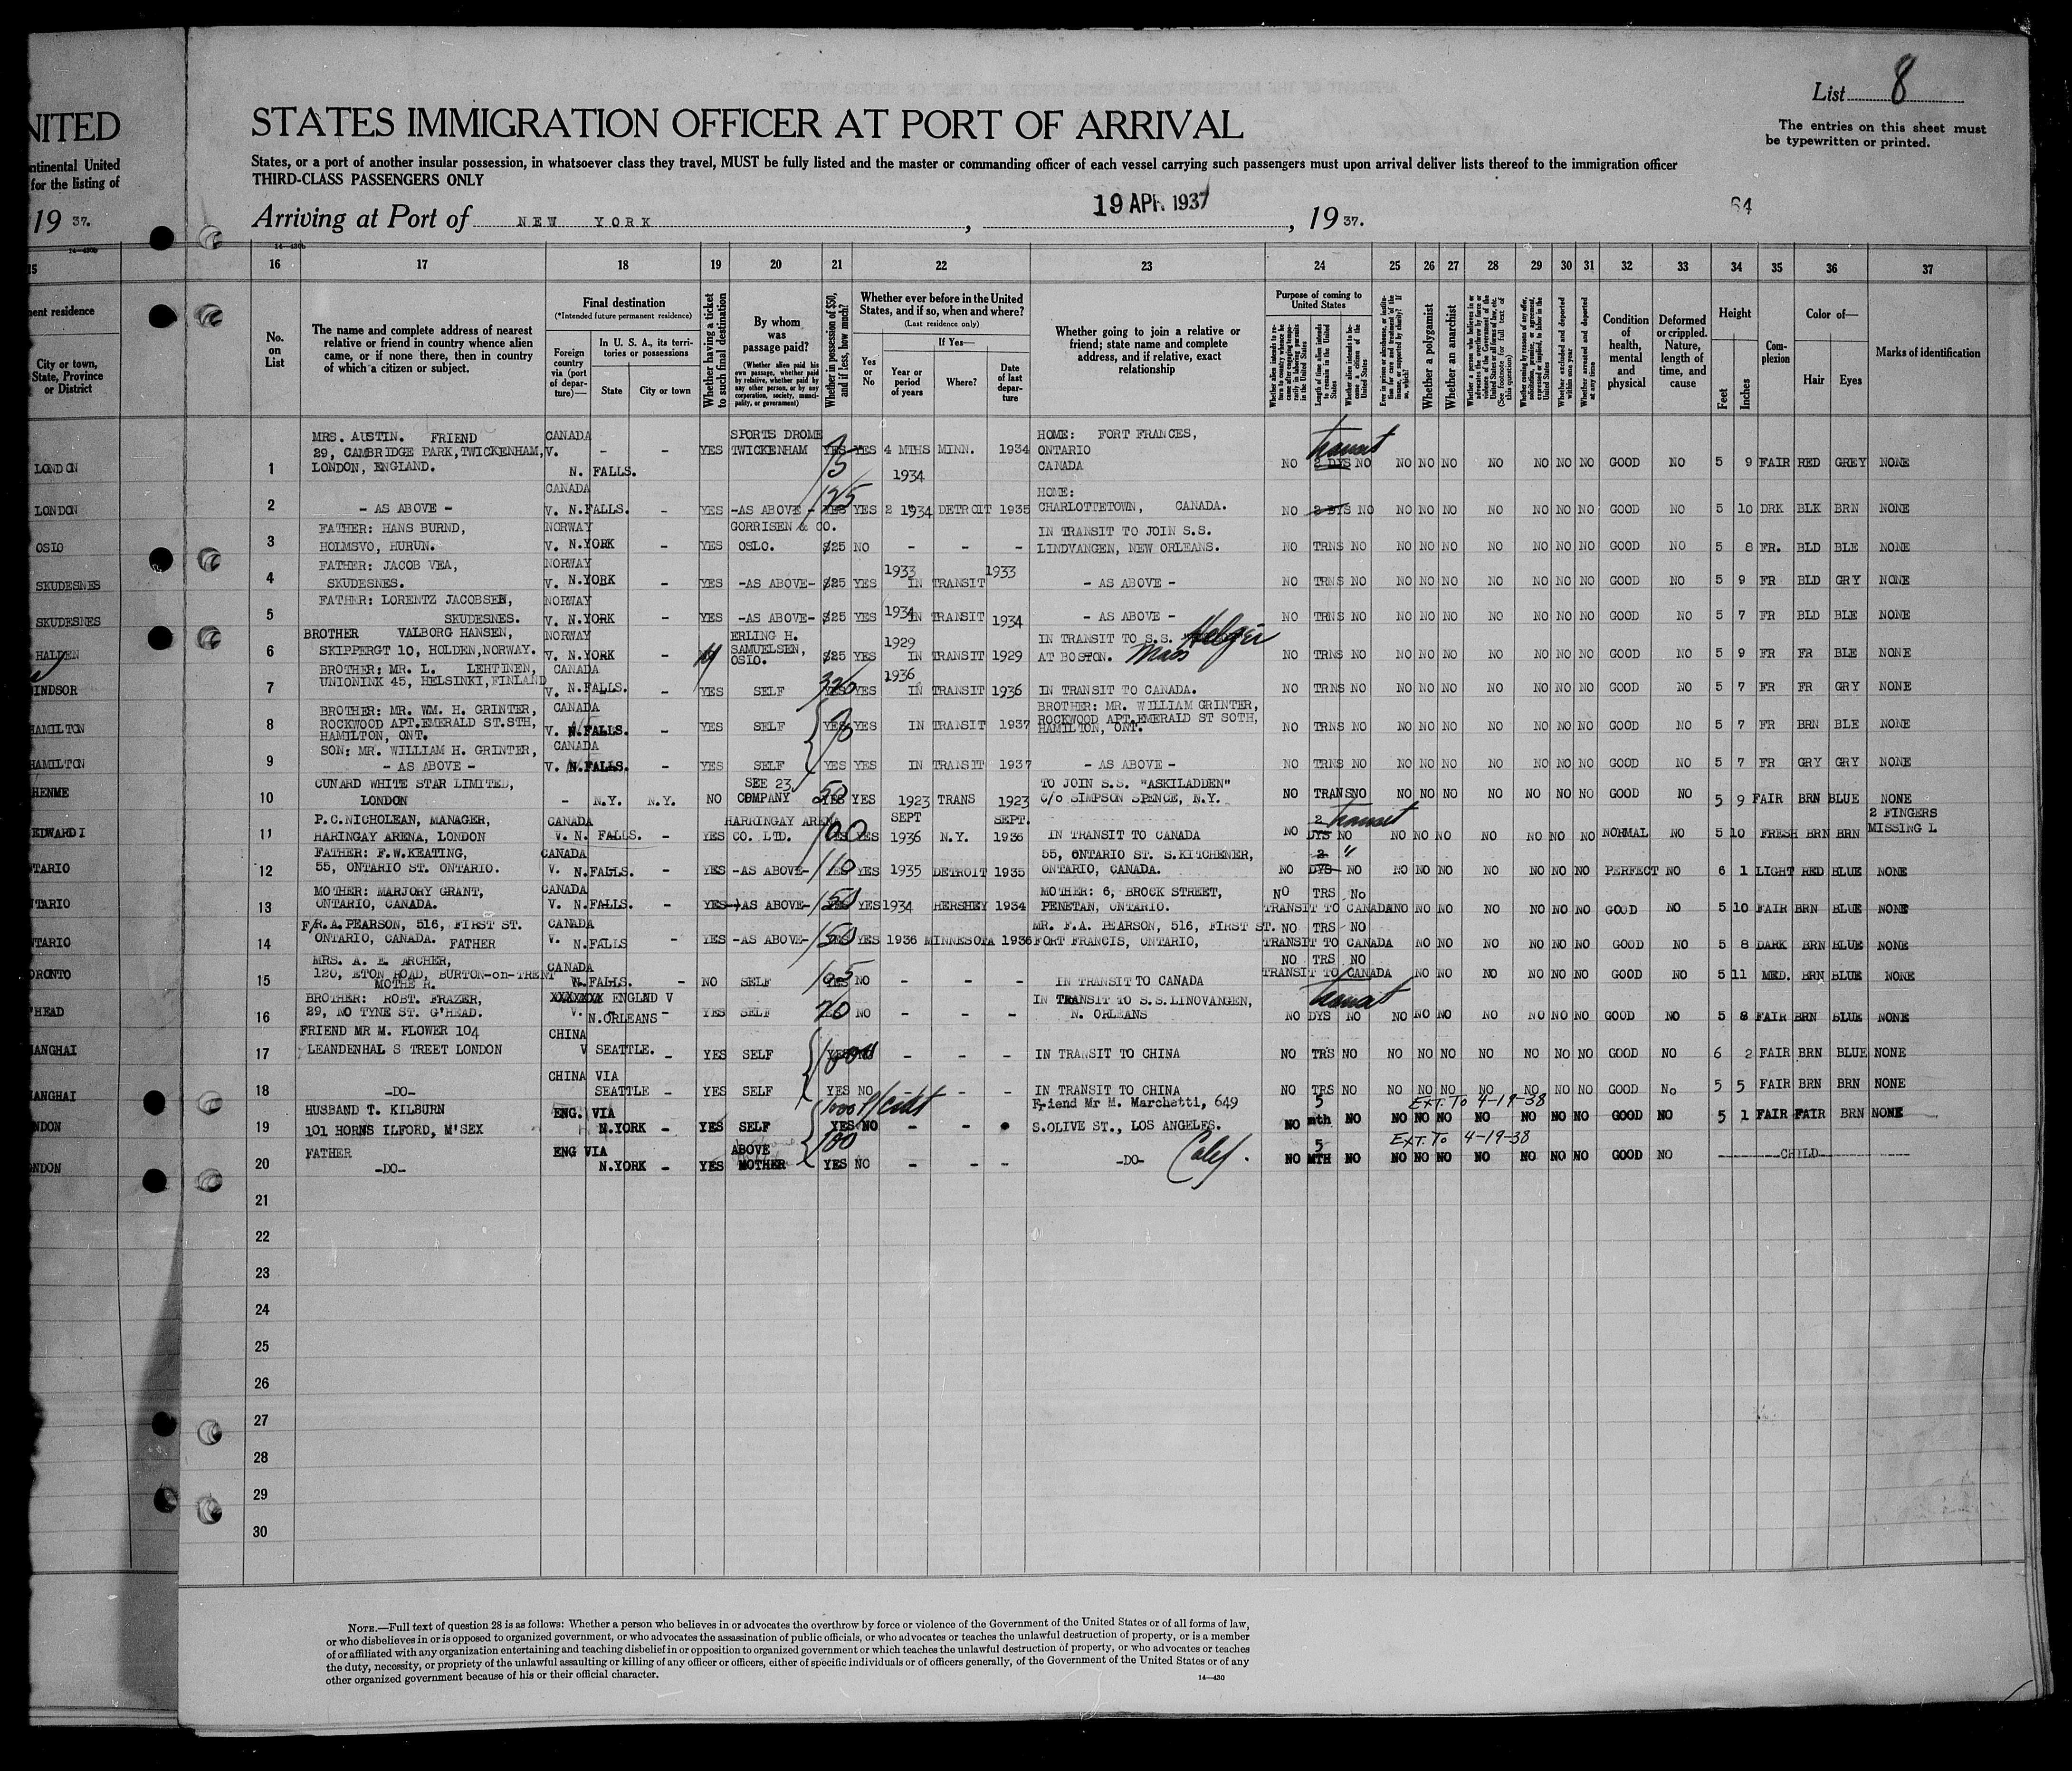 List 8
The entries on this sheet must
be typewritten or printed.
NITED
STATES IMMIGRATION OFFICER AT PORT OF ARRIVAL
ntinental United
for the listing of
States, or a port of another insular possession, in whatsoever class they travel, MUST be fully listed and the master or commanding officer of each vessel carrying such passengers must upon arrival deliver lists thereof to the immigration officer
THIRD-CLASS PASSENGERS ONLY
19 37.
Arriving at Port of NEW YORK , 19 APR. 1937 , 19 37.
64
14-430b
14-430b
15 16 17 18 19 20 21 22 23 24 25 26 27 28 29 30 31 32 33 34 35 36 37
ent residence
City or town,
State, Province
or District
No.
on
List
The name and complete address of nearest
relative or friend in country whence alien
came, or if none there, then in country
of which a citizen or subject.
Final destination
(*Intended future permanent residence)
Foreign
country
via (port
of depar-
ture)—
In U. S. A., its terri-
tories or possessions
State City or town
Whether having a ticket
to such final destination
By whom
was
passage paid?
(Whether alien paid his
own passage, whether paid
by relative, whether paid by
any other person, or by any
corporation, society, munici-
pality, or government)
Whether in possession of $50,
and if less, how much?
Whether ever before in the United
States, and if so, when and where?
(Last residence only)
Yes
or
No
If Yes—
Year or
period
of years
Where?
Date
of last
depar-
ture
Whether going to join a relative or
friend; state name and complete
address, and if relative, exact
relationship
Purpose of coming to
United States
Whether alien intends to re-
turn to country whence he
came after engaging tempo-
rarily in laboring pursuits
in the United States
Length of time alien intends
to remain in the United
States
Whether alien intends to be-
come a citizen of the
United States
Ever in prison or almshouse, or institu-
tion for care and treatment of the
insane, or supported by charity? If
so, which?
Whether a polygamist
Whether an anarchist
Whether a person who believes in or
advocates the overthrow by force or
violence of the Government of the
United States or all forms of law, etc.
(See footnote for full text of
this question)
Whether coming by reason of any offer,
solicitation, promise, or agreement,
expressed or implied, to labor in the
United States
Whether excluded and deported
within one year
Whether arrested and deported
at any time
Condition
of
health,
mental
and
physical
Deformed
or crippled.
Nature,
length of
time, and
cause
Height
Feet
Inches
Com-
plexion
Color of—
Hair Eyes
Marks of identification
MRS. AUSTIN. FRIEND CANADA SPORTS DROME HOME: FORT FRANCES, transit
29, CAMBRIDGE PARK, TWICKENHAM, V. - - YES TWICKENHAM YES YES 4 MTHS MINN. 1934 ONTARIO
LONDON 1 LONDON, ENGLAND. N. FALLS. 75 1934 CANADA NO 2 DYS NO NO NO NO NO NO NO NO GOOD NO 5 9 FAIR RED GREY NONE
CANADA 125 HOME:
LONDON 2 - AS ABOVE - V. N.FALLS. - YES -AS ABOVE- YES YES 2 1934 DETROIT 1935 CHARLOTTETOWN, CANADA. NO 2 DYS NO NO NO NO NO NO NO NO GOOD NO 5 10 DRK BLK BRN NONE
FATHER: HANS BURND, NORWAY GORRISEN & CO. IN TRANSIT TO JOIN S.S.
OSLO 3 HOLMSVO, HURUN. V. N.YORK - YES OSLO. $25 NO - - - LINDVANGEN, NEW ORLEANS. NO TRNS NO NO NO NO NO NO NO NO GOOD NO 5 8 FR. BLD BLE NONE
FATHER: JACOB VEA, NORWAY 1933 1933
SKUDESNES 4 SKUDESNES. V. N.YORK - YES -AS ABOVE- $25 YES IN TRANSIT - AS ABOVE - NO TRNS NO NO NO NO NO NO NO NO GOOD NO 5 9 FR BLD GRY NONE
FATHER: LORENTZ JACOBSEN, NORWAY 1934
SKUDESNES 5 SKUDESNES. V. N.YORK - YES -AS ABOVE- $25 YES IN TRANSIT 1934 - AS ABOVE - NO TRNS NO NO NO NO NO NO NO NO GOOD NO 5 7 FR BLD BLE NONE
BROTHER VALBORG HANSEN, NORWAY ERLING H. 1929 IN TRANSIT TO S.S.
HALDEN 6 SKIPPERGT 10, HOLDEN, NORWAY. V. N.YORK - SAMUELSEN, OSLO. $25 YES IN TRANSIT 1929 AT BOSTON. Mass NO TRNS NO NO NO NO NO NO NO NO GOOD NO 5 9 FR FR BLE NONE
BROTHER; MR. L. LEHTINEN, CANADA 1936
INDSOR 7 UNIONINK 45, HELSINKI, FINLAND V. N.FALLS. - YES SELF YES YES IN TRANSIT 1936 IN TRANSIT TO CANADA. NO TRNS NO NO NO NO NO NO NO NO GOOD NO 5 7 FR FR GRY NONE
BROTHER: MR. WM. H. GRINTER, CANADA BROTHER: MR. WILLIAM GRINTER,
HAMILTON 8 ROCKWOOD APT. EMERALD ST. STH, HAMILTON, ONT. V. N.FALLS. YES SELF YES YES IN TRANSIT 1937 ROCKWOOD APT. EMERALD ST SOTH, HAMILTON, ONT. NO TRNS NO NO NO NO NO NO NO NO GOOD NO 5 7 FR BRN BLE NONE
SON: MR. WILLIAM H. GRINTER, CANADA
HAMILTON 9 - AS ABOVE - V. N.FALLS. - YES SELF YES YES IN TRANSIT 1937 - AS ABOVE - NO TRNS NO NO NO NO NO NO NO NO GOOD NO 5 7 FR GRY GRY NONE
CUNARD WHITE STAR LIMITED, SEE 23 50 TO JOIN S.S. "ASKILADDEN"
HENME 10 LONDON - N.Y. N.Y. NO COMPANY YES YES 1923 TRANS 1923 c/o SIMPSON SPENCE, N.Y. NO TRANS NO NO NO NO NO NO NO NO GOOD NO 5 9 FAIR BRN BLUE NONE
P.C.NICHOLEAN, MANAGER, CANADA HARRINGAY ARENA 100 SEPT SEPT. 2 transit 2 FINGERS
EDWARD I 11 HARINGAY ARENA, LONDON V. N. FALLS. - YES CO. LTD. YES YES 1936 N.Y. 1936 IN TRANSIT TO CANADA NO DYS NO NO NO NO NO NO NO NO NORMAL NO 5 10 FRESH BRN BRN MISSING L
FATHER: F.W.KEATING, CANADA 110 55, ONTARIO ST. S.KITCHENER, 2 "
TARIO 12 55, ONTARIO ST. ONTARIO. V. N.FALLS. - YES -AS ABOVE- YES YES 1935 DETROIT 1935 ONTARIO, CANADA. NO DYS NO NO NO NO NO NO NO NO PERFECT NO 6 1 LIGHT RED BLUE NONE
MOTHER: MARJORY GRANT, CANADA 150 MOTHER: 6, BROCK STREET, NO TRS No
TARIO 13 ONTARIO, CANADA. V. N.FALLS. - YES -AS ABOVE- YES YES 1934 HERSHEY 1934 PENETAN, ONTARIO. TRANSIT TO CANADA NO NO NO NO NO NO NO GOOD NO 5 10 FAIR BRN BLUE NONE
F/R.A.PEARSON, 516, FIRST ST. CANADA 150 MR. F.A. PEARSON, 516, FIRST ST. NO TRS NO
TARIO 14 ONTARIO, CANADA. FATHER V. N.FALLS - YES -AS ABOVE- YES YES 1936 MINNESOTA 1936 FORT FRANCIS, ONTARIO, TRANSIT TO CANADA NO NO NO NO NO NO GOOD NO 5 8 DARK BRN BLUE NONE
MRS. A. E. ARCHER, CANADA NO TRS NO
ORONTO 15 120, ETON ROAD, BURTON-on-TRENT MOTHE R. N.FALLS. - NO SELF YES NO - - - IN TRANSIT TO CANADA TRANSIT TO CANADA NO NO NO NO NO NO GOOD NO 5 11 MED. BRN BLUE NONE
BROTHER: ROBT. FRAZER, XXXXXXX ENGLND V IN TRANSIT TO S.S.LINOVANGEN, transit
'HEAD 16 29, NO TYNE ST. G'HEAD. V. N.ORLEANS - YES SELF NO - - - N. ORLEANS NO DYS NO NO NO NO NO NO NO NO GOOD NO 5 8 FAIR BRN BLUE NONE
FRIEND MR M. FLOWER 104 CHINA
ANGHAI 17 LEANDENHAL S TREET LONDON V SEATTLE. - YES SELF YES NO - - - IN TRANSIT TO CHINA NO TRS NO NO NO NO NO NO NO NO GOOD NO 6 2 FAIR BRN BLUE NONE
CHINA VIA
ANGHAI 18 -DO- SEATTLE - YES SELF YES NO - - IN TRANSIT TO CHINA NO TRS NO NO NO NO NO NO NO NO GOOD No 5 5 FAIR BRN BRN NONE
HUSBAND T. KILBURN ENG. VIA Friend Mr M. Marchetti, 649 5 EXT. TO 4-19-38
NDON 19 101 HORNS ILFORD, M'SEX N.YORK - YES SELF YES NO - - S.OLIVE ST., LOS ANGELES. NO mth NO NO NO NO NO NO NO NO GOOD NO 5 1 FAIR FAIR BRN NONE
FATHER ENG VIA ABOVE 100 Calif. 5 EXT. TO 4-19-38
ONDON 20 -DO- N.YORK - YES MOTHER YES NO - - - -DO- NO MTH NO NO NO NO NO NO NO NO GOOD NO CHILD
21
22
23
24
25
26
27
28
29
30
NOTE.—Full text of question 28 is as follows: Whether a person who believes in or advocates the overthrow by force or violence of the Government of the United States or of all forms of law,
or who disbelieves in or is opposed to organized government, or who advocates the assassination of public officials, or who advocates or teaches the unlawful destruction of property, or is a member
of or affiliated with any organization entertaining and teaching disbelief in or opposition to organized government or which teaches the unlawful destruction of property, or who advocates or teaches
the duty, necessity, or propriety of the unlawful assaulting or killing of any officer or officers, either of specific individuals or of officers generally, of the Government of the United States or of any
other organized government because of his or their official character.
14—430